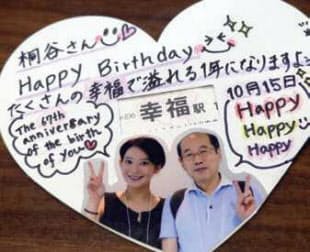 桐谷さん
Happy Birthday
たくさんの幸福で溢れる1年になりますよう
10月15日
The 67th
anniversary
of the birth
of you
幸福駅
Happy
Happy
Happy